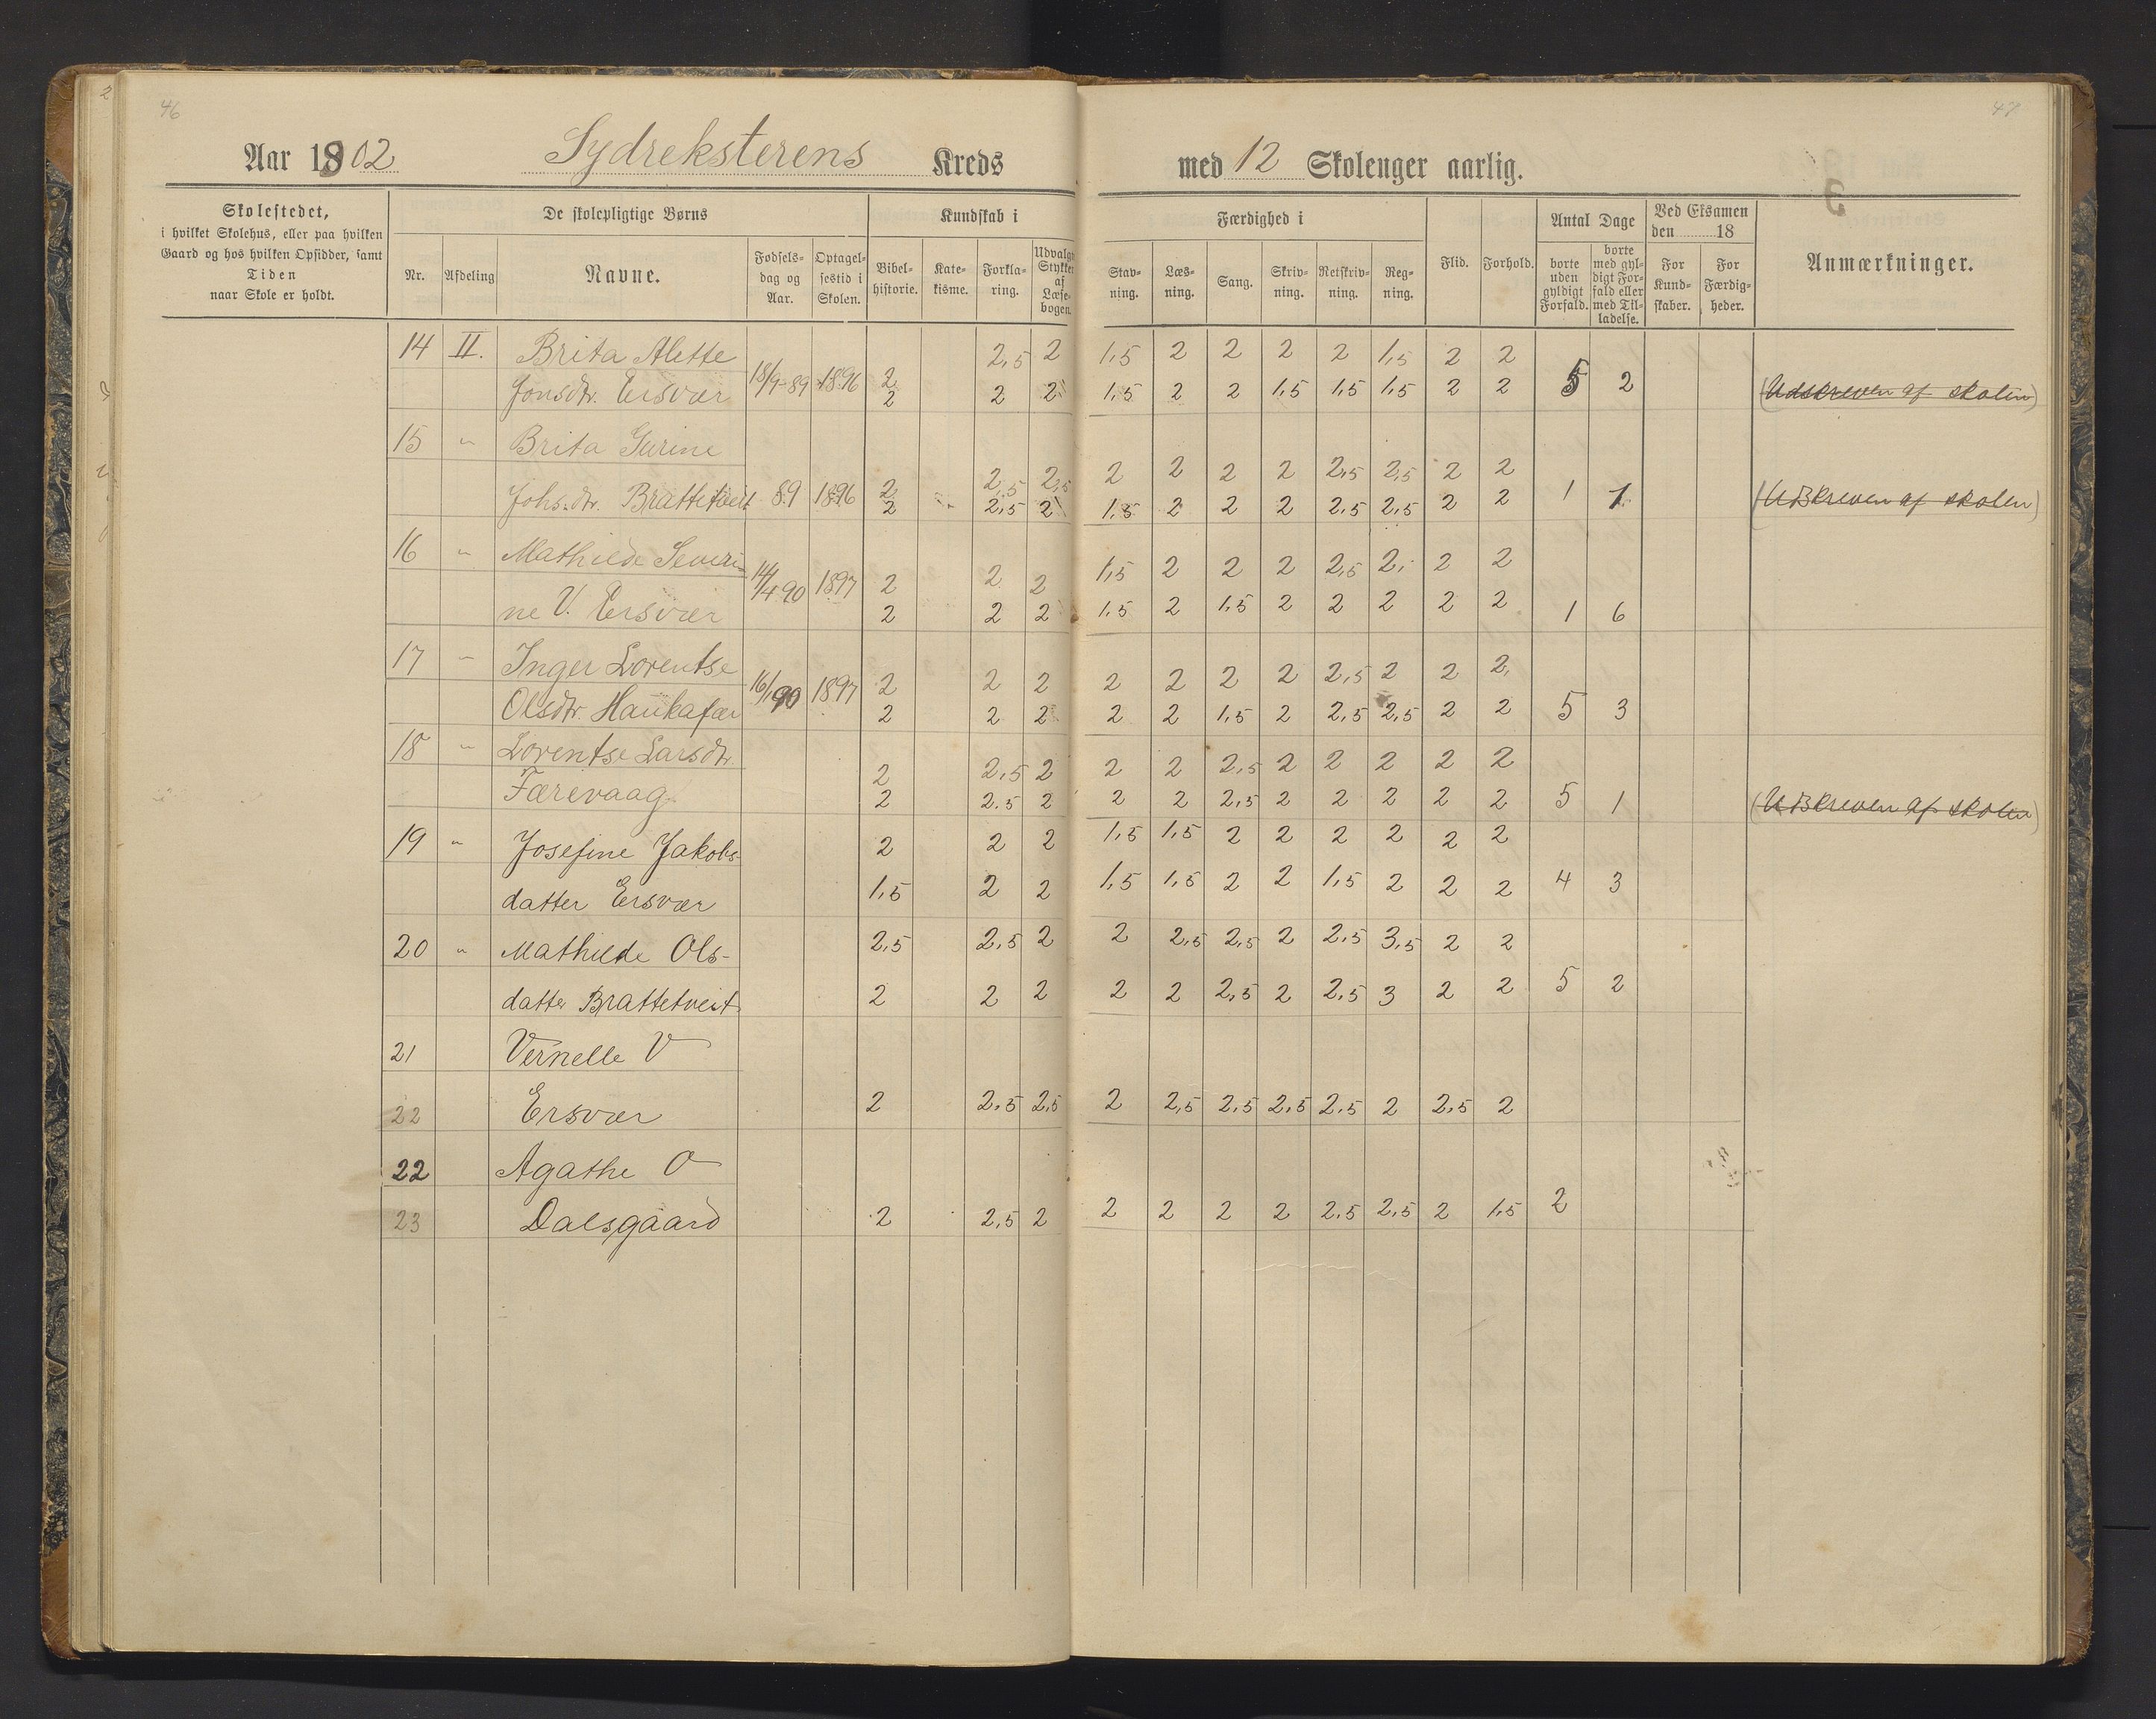 46
47
Aar 1902 Sydreksterens Kreds med 12 Skoleuger aarlig.
Skolestedet,
i hvilket Skolehus, eller paa hvilken
Gaard og hos hvilken Opsidder, samt
Tiden
naar Skole er holdt.
De skolepligtige Børns
Nr. Afdeling Navne. Fødsels- dag og Aar. Optagel- sestid i Skolen.
Kundskab i
Bibel- historie. Kate- kisme. Forkla- ring. Udvalgte Stykker af Læse- bogen.
Færdighed i
Stav- ning. Læs- ning. Sang. Skriv- ning. Retskriv- ning. Reg- ning.
Flid. Forhold.
Antal Dage
borte uden gyldigt Forfald. borte med gyl- digt For- fald eller med Til- ladelse.
Ved Eksamen
den 18
For Kund- skaber. For Færdig- heder.
Anmærkninger.
14 II. Brita Alette 2,5 2 1,5 2 2 2 2 1,5 2 2
Jonsdtr. Ersvær 18/9-89 1896 2 2 2 2 1,5 2 2 1,5 1,5 1,5 2 2 5 2 (Udskreven af skolen)
15 " Brita Gurine
2 2,5 2,5 2 2 2 2 2,5 2,5 2 2
Johs.dtr. Brattetveit 89 1896 2 2,5 2 1,5 2 2 2 2,5 2,5 2 2 1 1 (Udskreven af skolen)
16 " Mathilde Severi-
14/4 90 1897 2 2 2 1,5 2 2 2 2,5 2, 2 2
ne V. Ersvær 2 2 2 1,5 2 1,5 2 2 2 2 2 1 6
17 " Inger Lorentse
16/1 90 1897 2 2 2 2 2 2 2 2,5 2 2 2
Olsdtr. Haukafær 2 2 2 2 2 1,5 2 2,5 2,5 2 2 5 3
18 " Lorentse Larsdtr.
2 2,5 2 2 2 2,5 2 2 2 2 2
Færevaag 2 2.5 2 2 2 2,5 2 2 2 2 2 5 1 (Udskreven af skolen)
19 " Josefine Jakobs- 2 2 2 1,5 1,5 2 2 2 2 2 2
datter Ersvær 1,5 2 2 1,5 1,5 2 2 1,5 2 2 2 4 3
20 " Mathilde Ols- 2,5 2,5 2 2 2,5 2,5 2 2,5 3,5 2 2
datter Brattetveit 2 2 2 2 2 2,5 2 2,5 3 2 2 5 2
21 Vernelle V
22 Ersvær 2 2,5 2,5 2 2,5 2,5 2,5 2,5 2 2,5 2
22 Agathe O
23 Dalsgaard 2 2,5 2 2 2 2 2 2,5 2,5 2 1,5 2